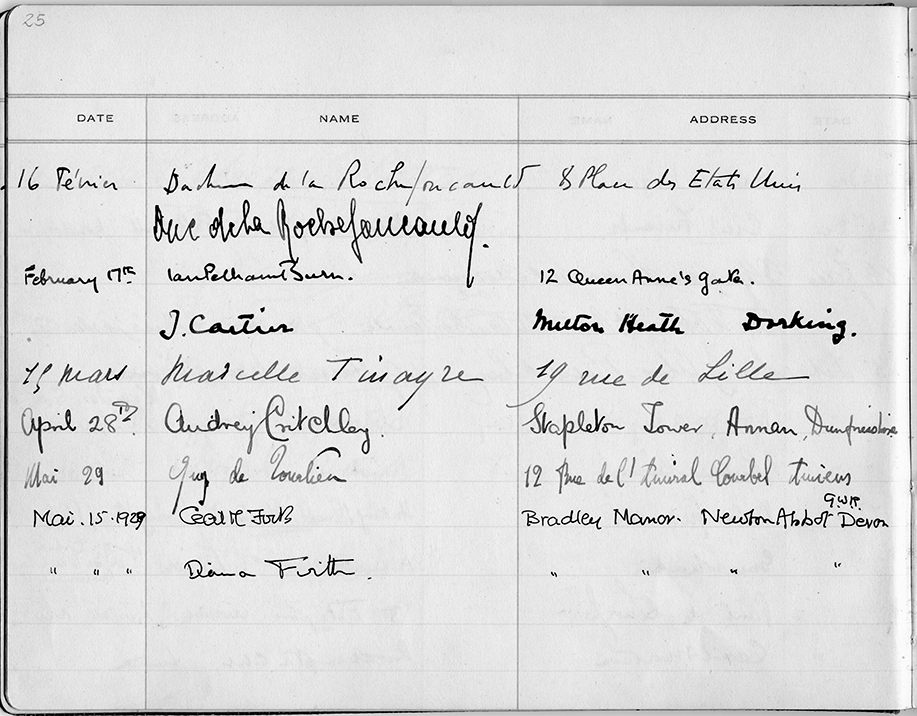 25
DATE NAME ADDRESS
16 Février Duchesse de la Rochefoucauld 8 Place des Etats Unis
Duc de la Rochefoucauld.
February 17th Ian Pelham Burn. 12 Queen Anne's Gate.
J. Cartier Milton Heath Dorking.
15 mars Marcelle Tinayre 19 rue de Lille
April 28th. Audrey Critchley. Stapleton Tower, Annan, Dumfriesshire
Mai 29 Guy de 12 Rue de l'Amiral Courbet Amiens
G.W.R.
Mai. 15. 1929 Cecil Bradley Manor. Newton Abbot Devon
" " " Diana Firth. " " " "